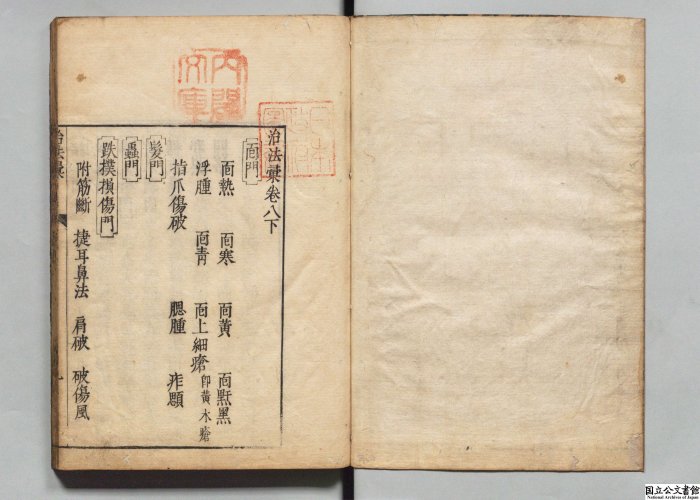 治法彙卷八下
面門
面熱 面寒 面黃 面黑
浮腫 面青 面上細瘡 即黃水瘡
指爪傷破 腮腫 痄
髮門
蟲門
跌撲損傷門
附筋斷 耳鼻法 破 破傷風
治法彙
一
內閣文庫
国立公文書館
National Archives of Japan